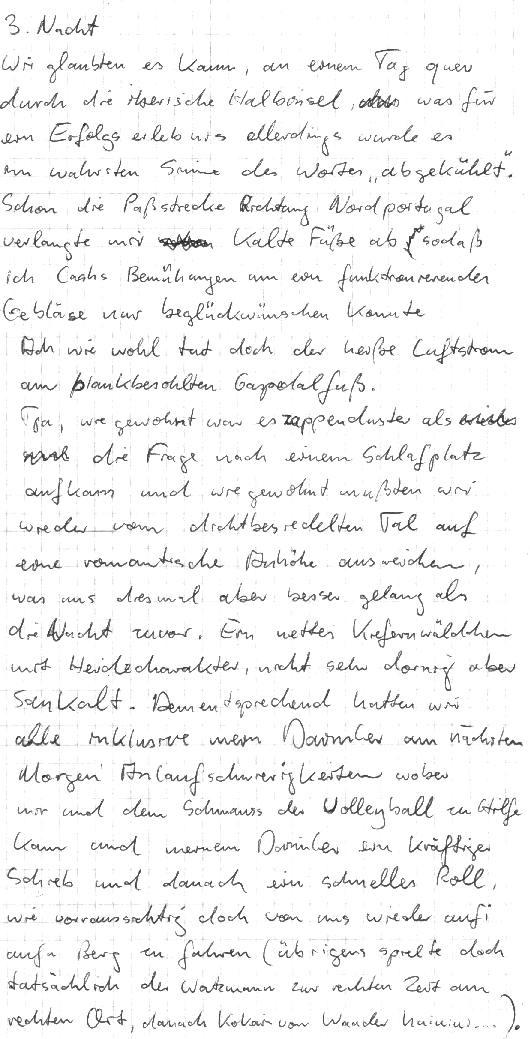 3. Nacht
Wir glaubten es kaum, an einem Tag quer
durch die iberische Halbinsel, was für
ein Erfolgserlebnis allerdings wurde es
im wahrsten Sinne des Wortes „abgekühlt".
Schon die Paßstrecke Richtung Nordportugal
verlangte mir kalte Füße ab, sodaß
ich Cashs Bemühungen um ein funktionierendes
Gebläse nur beglückwünschen konnte
Ach wie wohl tat doch der heiße Luftstrom
am blankbesohlten Gaspedalfuß.
Tja, wie gewohnt war es zappenduster als
die Frage nach einem Schlafplatz
aufkam und wie gewohnt mußten wir
wieder vom dichtbesiedelten Tal auf
eine romantische Anhöhe ausweichen,
was uns diesmal aber besser gelang als
die Nacht zuvor. Ein nettes Kiefernwäldchen
mit Heidecharakter, nicht sehr dornig aber
Saukalt. Dementsprechend hatten wir
alle inklusive mein Daimler am nächsten
Morgen Anlaufschwierigkeiten wobei
mir und dem Schmauss der Volleyball zu Hilfe
kam und meinem Daimler ein kräftiger
Schieb und danach ein schneller Roll,
wie vorraussichtig doch von uns wieder aufi
auf'n Berg zu fahren (übrigens spielte doch
tatsächlich der Watzmann zur rechten Zeit am
rechten Ort, danach Kokain von Wander ...).